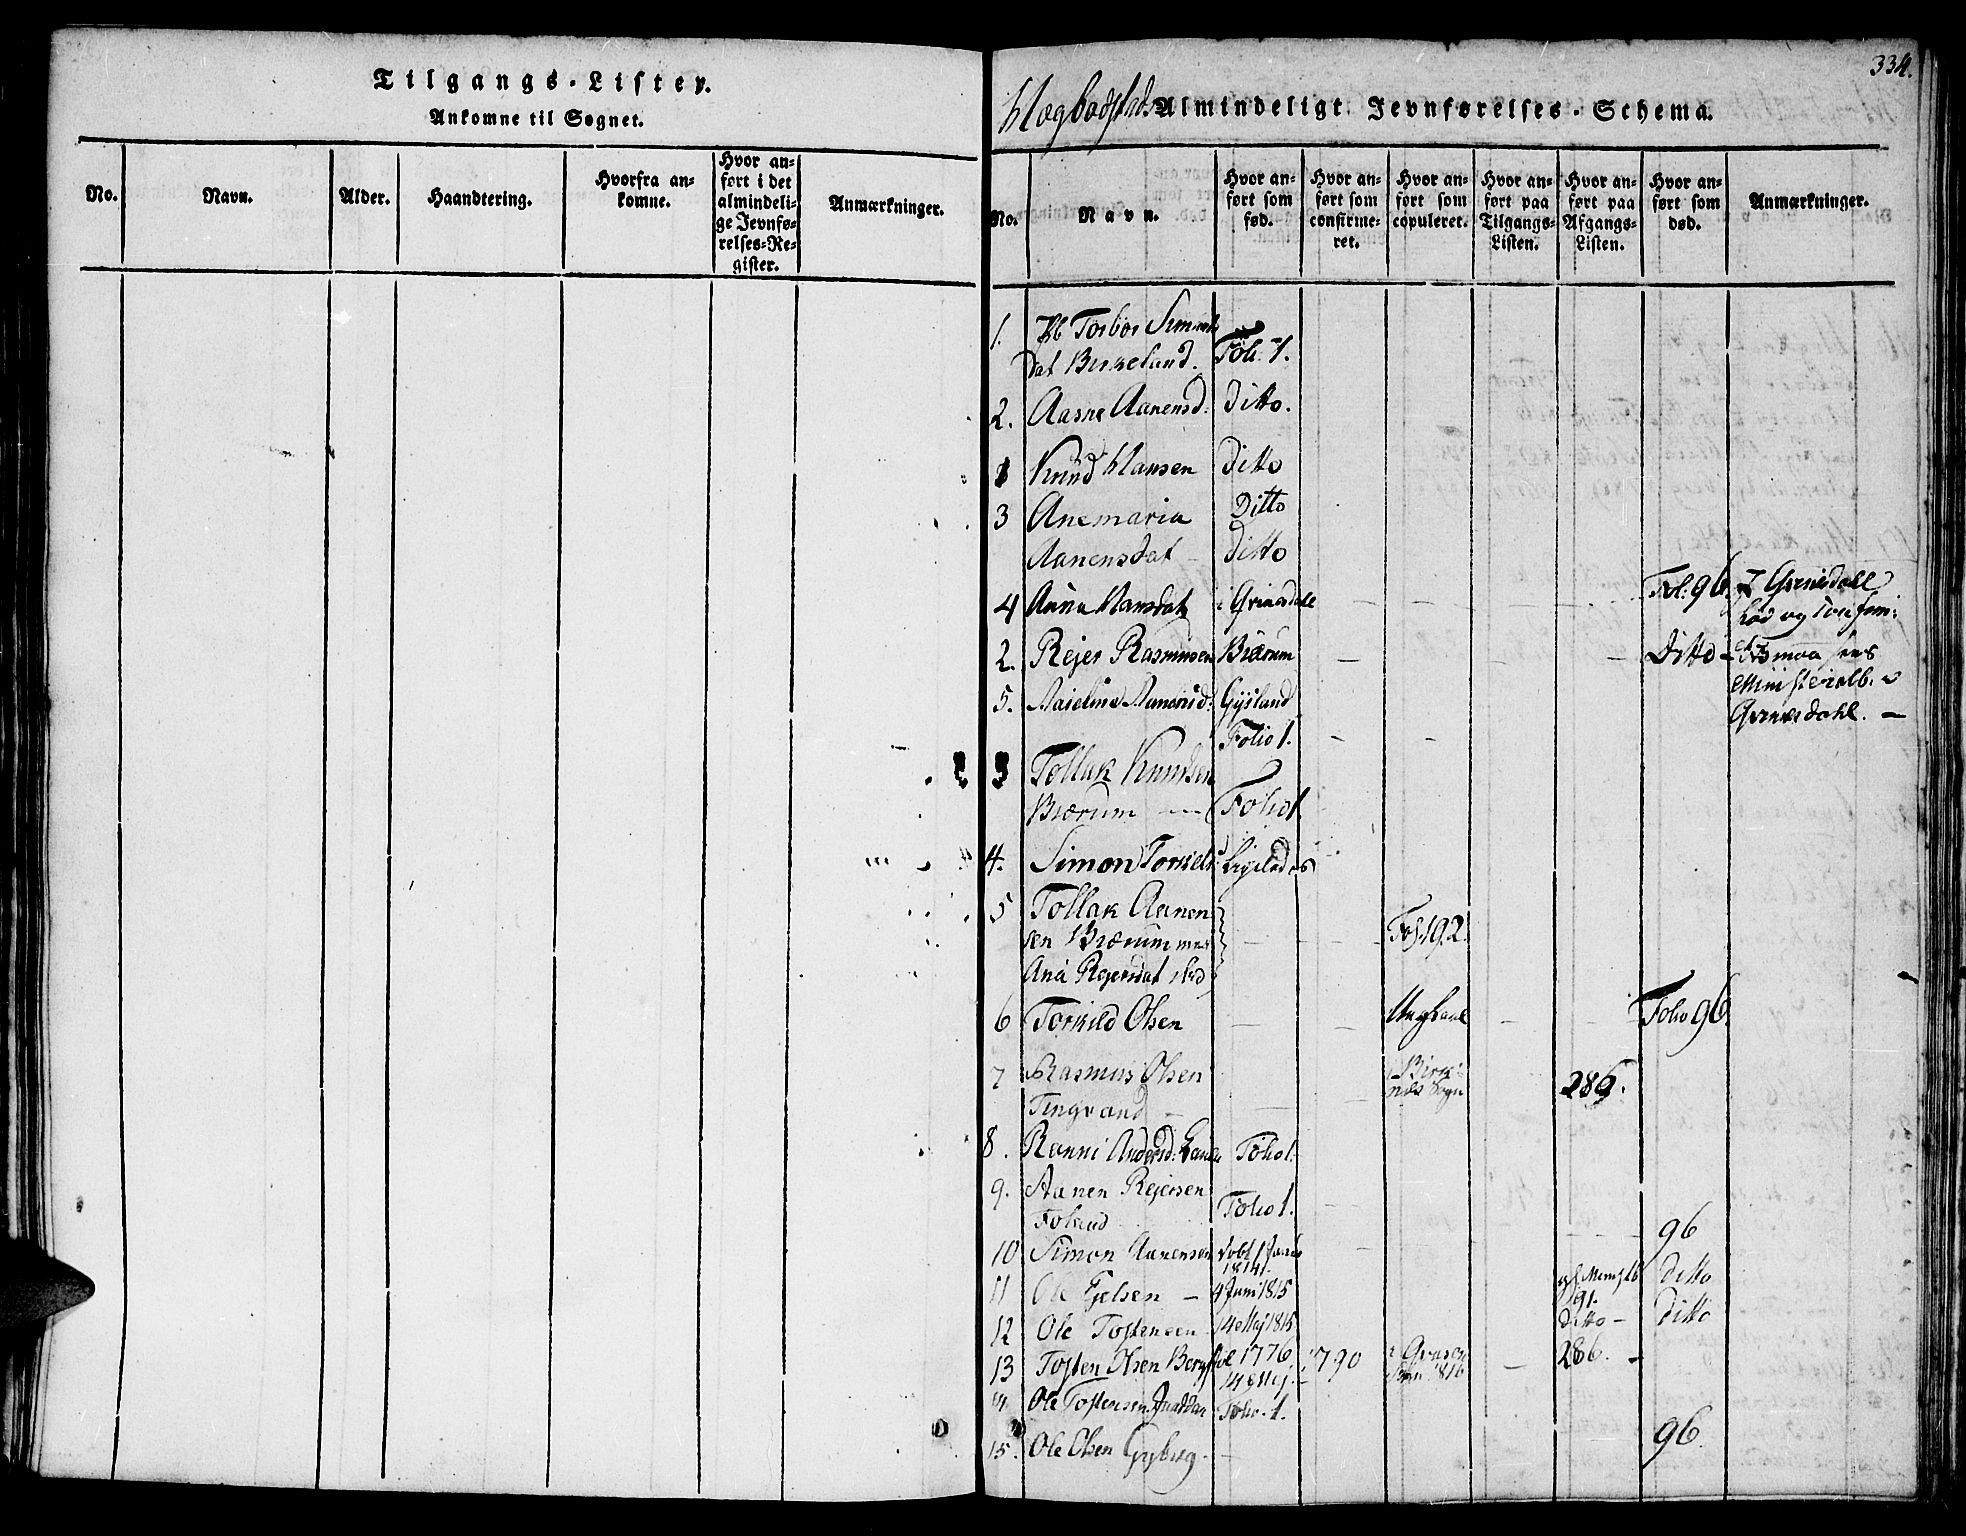 Tilgangs-Lister.
Ankomne til Sognet.
No.
Navn.
Alder.
Haandtering.
Hvorfra an-
komne.
Hvor an-
ført i det
almindeli-
ge Jevnfø-
relses-Re-
gister.
Anmærkninger.
334.
Almindeligt Jevnførelses-Schema.
No.
Navn.
Hvor an-
ført som
fød.
Hvor an-
ført som
confirme-
ret.
Hvor an-
ført som
copuleret.
Hvor an-
ført paa
Tilgangs-
Listen.
Hvor an-
ført paa
Afgangs-
Listen.
Hvor an-
ført som
død.
Anmærkninger.
1. Torbor
dat Birkeland. Fol: 1.
2. Aasne Aanensd: Ditto.
Knud Hansen Ditto
3 Anemaria Ditto
Aanensdat - Ditto
4 Anna Hansdat i Grinsdahl Fol: 96.
2. Rejer Rasmusen Bierum Ditto -
5. Gysland
Ministerialb. 
Folio 1.
3 Tollak Knudsen
Bierum Folio 1
4. Simon Torkels: Ligeledes
5 Tollak Aanen
sen Bierum Fol. 192.
Ana Rejersdat
6 Torkild Olsen Ungkarl Folio 96.
7 Rasmus Olsen i Birke-
Tingvand - næs Sogn 286.
8. Ranni Andersd: Folio 1.
9. Aanen Rejersen
Foland Folio 1.
96
10 Simon Aanensen
1814.
11 Ole - 4 Juni 1815 91. Ditto
12 Ole Tostensen 14 Maj 1815 Ditto - Ditto
13 Tosten Olsen 1776 1790 286. -
14 Maj.
14 Ole Tostensen Folio. 1.
15. Ole Olsen Gyberg - 96.